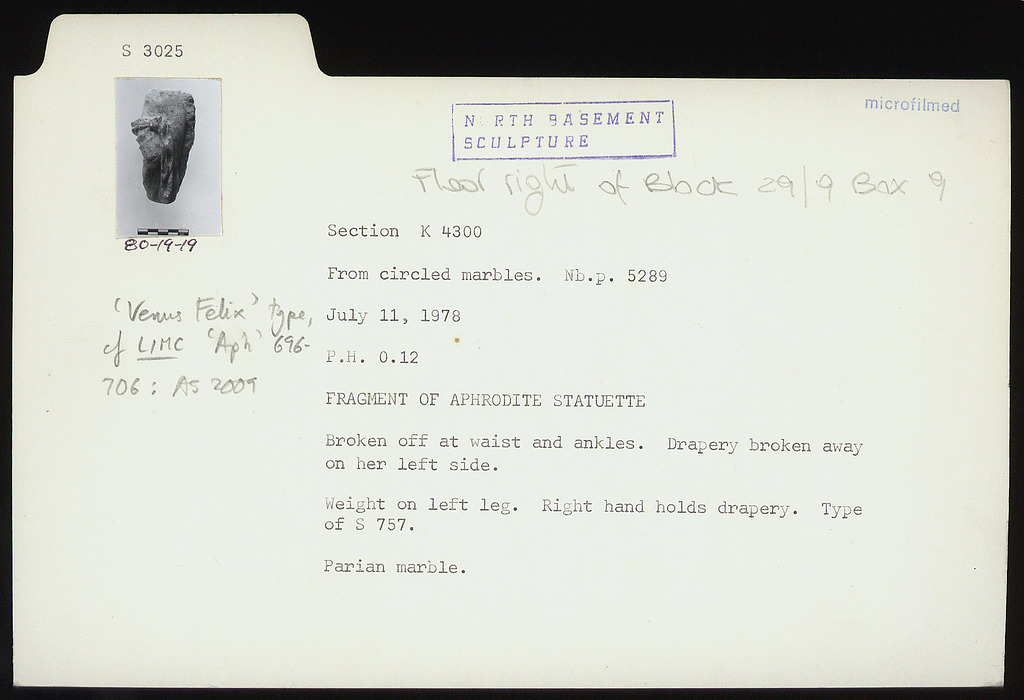 S 3025
microfilmed
N RTH BASEMENT
SCULPTURE
Floor right of Block 29/9 Box 9
80-19-19
Section K 4300
From circled marbles. Nb.p. 5289
'Venus Felix' type,
cf LIMC 'Aph' 696-
706: AS 2009
July 11, 1978
P.H. 0.12
FRAGMENT OF APHRODITE STATUETTE
Broken off at waist and ankles. Drapery broken away
on her left side.
Weight on left leg. Right hand holds drapery. Type
of S 757.
Parian marble.